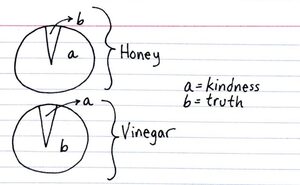 b
a
Honey
a = kindness
b = truth
a
b
Vinegar